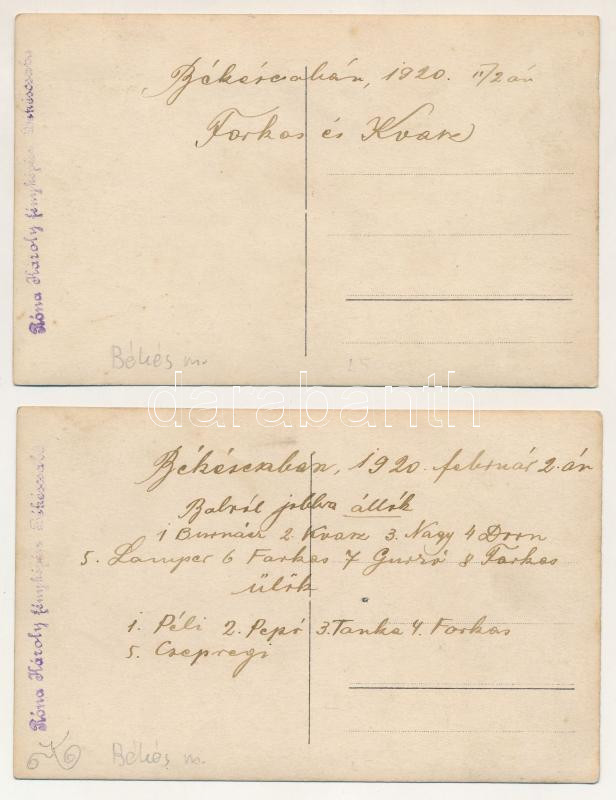 Békéscsabán, 1920. II/2 án
Farkas és Kvarz
Róna Károly fényképész Békéscsaba
Békés m.
darabanth
Békéscsaban, 1920. február 2.-án
Balról jobbra állók
1 Burnász 2. Kvarz 3. Nagy 4 Dorn
5. Lamper 6 Farkas 7 Guszó 8 Farkas
ülők
1. Péli 2. Pepó 3. Tanka 4. Farkas
5. Csepregi
Róna Károly fényképész Békéscsaba
Békés m.